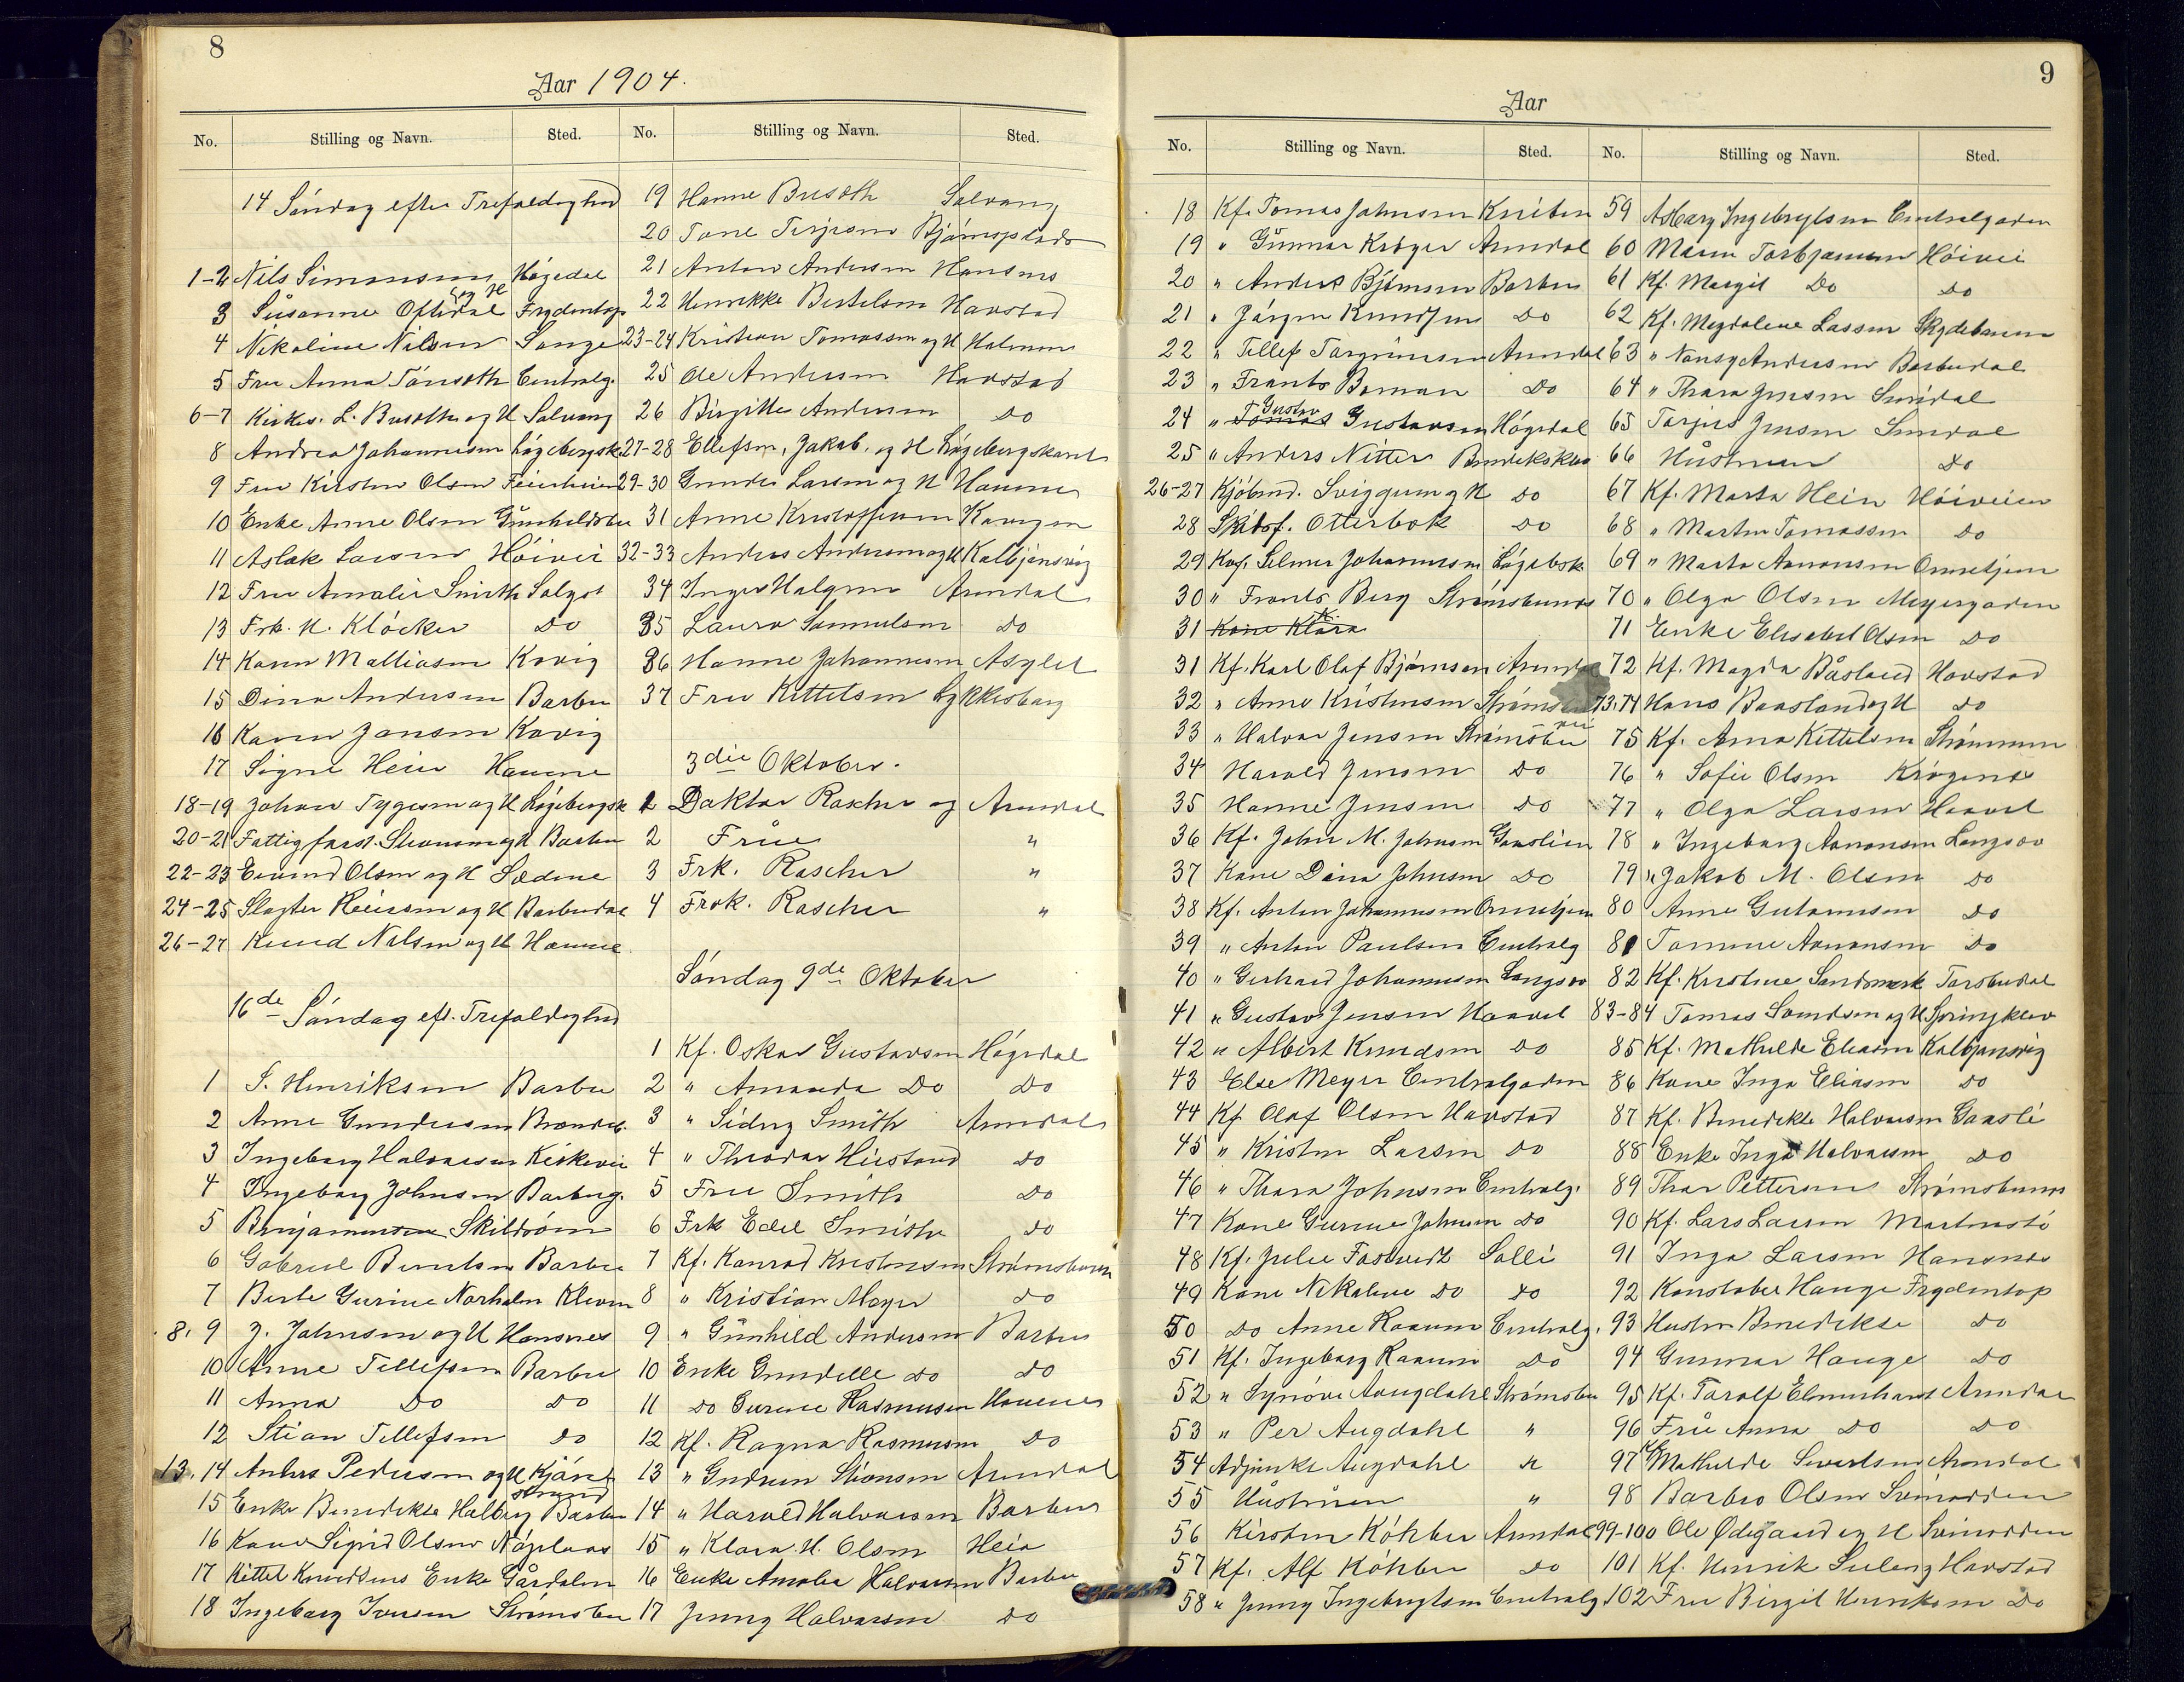 8
Aar 1904.
No. Stilling og Navn. Sted.
14 Søndag efter Trefoldighed
1-2 Nils Simonsen og H Høgedal
3 Susanne Oftedal Frydentop
4 Nikoline Nilsen Songe
5 Fru Anna Tønseth Centralg.
6-7 Kirkes. L. Buseth og H Solvang
8 Andrea Johannesen Løgebergsk
9 Fru Kirsten Olsen Feierheien
10 Enke Anne Olsen Gunhildsbu
11 Aslak Larsen Høivei
12 Fru Amalie Smith Solyst
13 Frk. H. Kløcker Do
14 Karen Mathiasen Kovig
15 Dina Andersen Barbu
16 Karen Jansen Kovig
17 Signe Hein Houene
18-19 Johan Tygesen og H Løgebergsk
20-21 Fattigforst. Stiansen og H Barbu
22-23 Eivind Olsen og H Lødene
24-25 Slagter Reiersen og H Barbudal
26-27 Knud Nilsen og H Houene
16de Søndag eft. Trefoldighed
1 S. Henriksen Barbu
2 Anne Gundersen Brændeb.
3 Ingeborg Halvorsen Kirkevei
4 Ingeborg Johnsen Barbug.
5 Benjaminsen Skilsøen
6 Gabriel Berntsen Barbu
7 Berte Gurine Norholm Kleven
8, 9 J. Johnsen og H Hansnes
10 Anne Tellefsen Barbu
11 Anna Do Do
12 Stian Tellefsen Do
13, 14 Anders Pedersen og H Kjørrestrand
15 Enke Benedikte Halberg Barbu
16 Kone Sigrid Olsen Nøgelaas
17 Kittel Knudsens Enke Gaardalen
18 Ingeborg Iversen Strømsbu
No. Stilling og Navn. Sted.
19 Hanne Buseth Solvang
20 Tone Terjesen Bjørnsplads
21 Anton Andersen Hansnes
22 Henrikke Bertelsen Havstad
23-24 Kristian Tomassen og H Holmen
25 Ole Andersen Havstad
26 Birgitte Andersen Do
27-28 Ellefsen, Jakob, og H Løgebergskaret
29-30 Gunder Larsen og H Houene
31 Anne Kristoffersen Kovigen
32-33 Anders Andersen og H Kolbjønsvig
34 Inger Halgren Arendal
35 Laura Samuelsen Do
36 Hanne Johannesen Asylet
37 Fru Kittelsen Lykkesborg
3die Oktober.
1 Doktor Rascher og Arendal
2 Frue "
3 Frk. Rascher "
4 Frøk. Rascher "
Søndag 9de Oktober
1 Kf. Oskar Gustavsen Høgedal
2 " Amanda Do Do
3 " Sidny Smith Arendal
4 " Theodor Hirstand Do
5 Fru Smith Do
6 Frk Edel Smith Do
7 Kf. Konrad Kristensen Strømsbuen
8 " Kristian Meyer Do
9 " Gunhild Andersen Barbu
10 Enke Gundelle Do Do
11 Do Gurine Rasmusen Houene
12 Kf. Ragna Rasmusen Do
13 " Gudrun Stiansen Arendal
14 " Harald Halvorsen Barbu
15 " Klara H. Olsen Heia
16 Enke Amalia Halvorsen Barbu
17 Jenny Halvorsen Do
9
Aar
No. Stilling og Navn. Sted.
18 Kf. Tomas Johnsen Kniben
19 " Gunnar Krøger Arendal
20 " Anders Bjørnsen Barbu
21 " Jørgen Knudsen Do
22 " Tellef Torgrimsen Arendal
23 " Frants Boman Do
24 " Tomas Gustav Gustavsen Høgedal
25 " Anders Nitter Bendeksklev
26-27 Kjøbmd. Sviggum og H Do
28 Otterbek Do
29 Kof. Selmer Johannesen Løgebek
30 " Frants Berg Strømsbuneset
31 Kone Klara
31 Kf. Karl Olaf Bjørnsen Arendal
32 " Anne Kristensen Strømsbu
33 " Halvor Jensen Strømsbu
34 Harald Jensen Do
35 Hanne Jensen Do
36 Kf. John M. Johnsen Gaaslien
37 Kone Dina Johnsen Do
38 Kf. Anton Johannesen Ormetjern
39 " Anton Paulsen Centralg
40 " Gerhard Johannesen Langsev
41 " Gustav Jensen Haavet
42 " Albert Knudsen Do
43 Else Meyer Centralgaden
44 Kf Olaf Olsen Havstad
45 " Kristen Larsen Do
46 " Thora Johnsen Centralg.
47 Kone Gurine Johnsen Do
48 Kf. Julie Fosvedt Solli
49 Kone Nikoline Do Do
50 Do Anne Raaum Centralg.
51 Kf. Ingeborg Raaum Do
52 " Synøve Aougdahl Strømsbu
53 " Per Augdahl "
54 Adjunkt Augdahl "
55 Hustruen "
56 Kirsten Köhler Arendal
57 Kf. Alf Köhler Do
58 " Jenny Ingebrigtsen Centralg
No. Stilling og Navn. Sted.
59 Asborg Ingebrigtsen Centralgaden
60 Maren Torbjørnsen Høivei
61 Kf. Margit Do Do
62 Kf. Magdalene Lassen Skydebanen
63 " Nansy Andersen Barbudal
64 " Thora Jensen Surdal
65 Torjus Jensen Surdal
66 Hustruen Do
67 Kf. Marta Hein Høiveien
68 " Marten Tomassen Do
69 " Marta Aanonsen Ormetjern
70 " Olga Olsen Meyergaden
71 Enke Elisabet Olsen Do
72 Kf. Magda Båsland Havstad
73, 74 Hans Baasland og H Do
75 Kf. Anna Kittelsen Strømmen
76 " Sofie Olsen Krøgenes
77 " Olga Larsen Haavet
78 " Ingeborg Aanonsen Langsev
79 " Jakob M. Olsen Do
80 Anne Gutormsen Do
81 Tomine Aanonsen Do
82 Kf. Kristine Sandmark Torsbudal
83-84 Tomas Svendsen og H Springklev
85 Kf. Mathilde Eliasen Kolbjønsvig
86 Kone Inga Eliasen Do
87 Kf. Benedikte Halvorsen Gaasli
88 Enke Inga Halvorsen Do
89 Thor Pettersen Strømsbuneset
90 Kf. Lars Larsen
91 Inga Larsen Hansnes
92 Konstabel Hauge Frydentop
93 Hustru Benedikte Do
94 Gunnar Hauge Do
95 Kf. Toralf Elmenhaus Arendal
96 Fru Anna Do Do
97 Mathilde Sivertsen Arendal
98 Barbro Olsen Svinodden
99-100 Ole Ødegaard og H Svinodden
101 Kf. Henrik Seeberg Havstad
102 Fru Birgit Henriksen Do